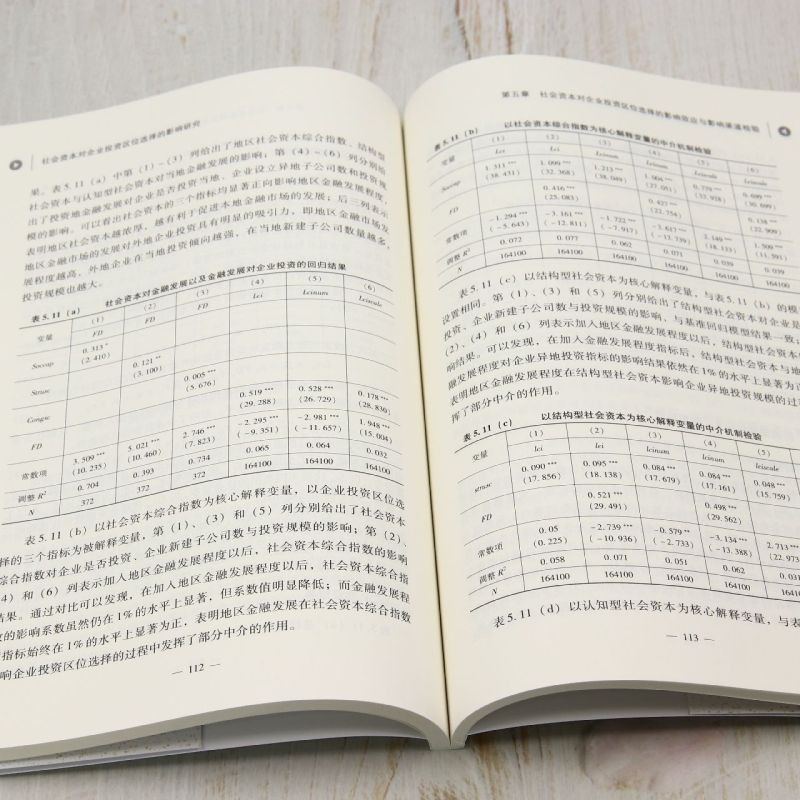 社会资本对企业投资区位选择的影响研究
果。表5.11（a）中第（1）-（3）列给出了地区社会资本综合指数、结构型
社会资本与认知型社会资本对当地金融发展的影响；第（4）-（6）列分别给
出了投资地金融发展对企业是否投资当地、企业设立异地子公司数和投资规
模的影响。可以看出社会资本的三个指标均显著正向影响地区金融发展程度，
表明地区社会资本越浓厚，越有利于促进本地金融市场的发展；后三列表示
地区金融市场的发展对外地企业投资具有明显的吸引力，即地区金融市场发
展程度越高，外地企业在当地投资倾向越强，在当地新建子公司数量越多，
投资规模也越大。
表5.11（a） 社会资本对金融发展以及金融发展对企业投资的回归结果
（1） （2） （3） （4） （5） （6）
变量 FD FD FD Lei Leinum Leiscale
Soccap 0.313* (2.410)
Strusc 0.121** (3.100)
Congsc 0.005*** (5.676)
FD 0.519*** (29.288) 0.528*** (26.729) 0.178*** (28.830)
常数项 3.509*** (10.235) 5.021*** (10.460) 2.746*** (7.823) -2.295*** (-9.351) -2.981*** (-11.657) 1.948*** (15.004)
调整R² 0.704 0.393 0.734 0.065 0.064 0.032
N 372 372 372 164100 164100 164100
表5.11（b）以社会资本综合指数为核心解释变量，以企业投资区位选
择的三个指标为被解释变量，第（1）、（3）和（5）列分别给出了社会资本
综合指数对企业是否投资、企业新建子公司数与投资规模的影响；第（2）、
4）和（6）列表示加入地区金融发展程度以后，社会资本综合指数的影响
结果。通过对比可以发现，在加入地区金融发展程度以后，社会资本综合指
数的影响系数虽然仍在1%的水平上显著，但系数值明显降低；而金融发展程
指标始终在1%的水平上显著为正，表明地区金融发展在社会资本综合指数
响企业投资区位选择的过程中发挥了部分中介的作用。
— 112 —
第五章 社会资本对企业投资区位选择的影响效应与影响渠道检验
表5.11（b） 以社会资本综合指数为核心解释变量的中介机制检验
（1） （2） （3） （4） （5） （6）
变量 Lei Lei Leinum Leinum Leiscale Leiscale
Soccap 1.311*** (38.431) 1.099*** (32.368) 1.213*** (38.049) 1.004*** (27.051)
FD 0.416*** (25.083) 0.427*** (22.754) 0.138*** (22.909)
常数项 -1.294*** (-5.643) -3.161*** (-12.811) -1.722*** (-7.917) -3.617*** (-13.739) 2.149*** (18.113) 1.509*** (11.591)
调整R² 0.072 0.077 0.062 0.071 0.039 0.039
N 164100 164100 164100 164100 164100 164100
表5.11（c）以结构型社会资本为核心解释变量，与表5.11（b）的模
设置相同。第（1）、（3）和（5）列分别给出了结构型社会资本对企业是
投资、企业新建子公司数与投资规模的影响，与基准回归模型结果一致；
（2）、（4）和（6）列表示加入地区金融发展程度以后，结构型社会资本的
响结果。可以发现，在加入金融发展程度指标后，结构型社会资本与地
融发展程度对企业异地投资指标的影响结果依然在1%的水平上显著为
表明地区金融发展程度在结构型社会资本影响企业异地投资规模的过
挥了部分中介的作用。
表5.11（c） 以结构型社会资本为核心解释变量的中介机制检验
（1） （2） （3） （4） （5）
变量 Lei Lei Leinum Leinum Leiscale
strusc 0.090*** (17.856) 0.095*** (18.138) 0.084*** (17.679) 0.084*** (17.161) 0.048*** (15.759)
FD 0.521*** (29.491) 0.498*** (29.562)
常数项 0.05 (0.225) -2.739*** (-10.936) -0.579** (-2.733) -3.134*** (-13.388) 2.713 (22.973
调整R² 0.058 0.071 0.051 0.062 0.031
N 164100 164100 164100 164100 16410
表5.11（d）以认知型社会资本为核心解释变量，与表
— 113 —